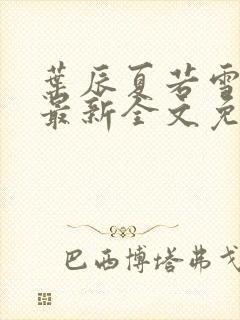 葉辰夏若雪
最新全文免
巴西博塔弗戈